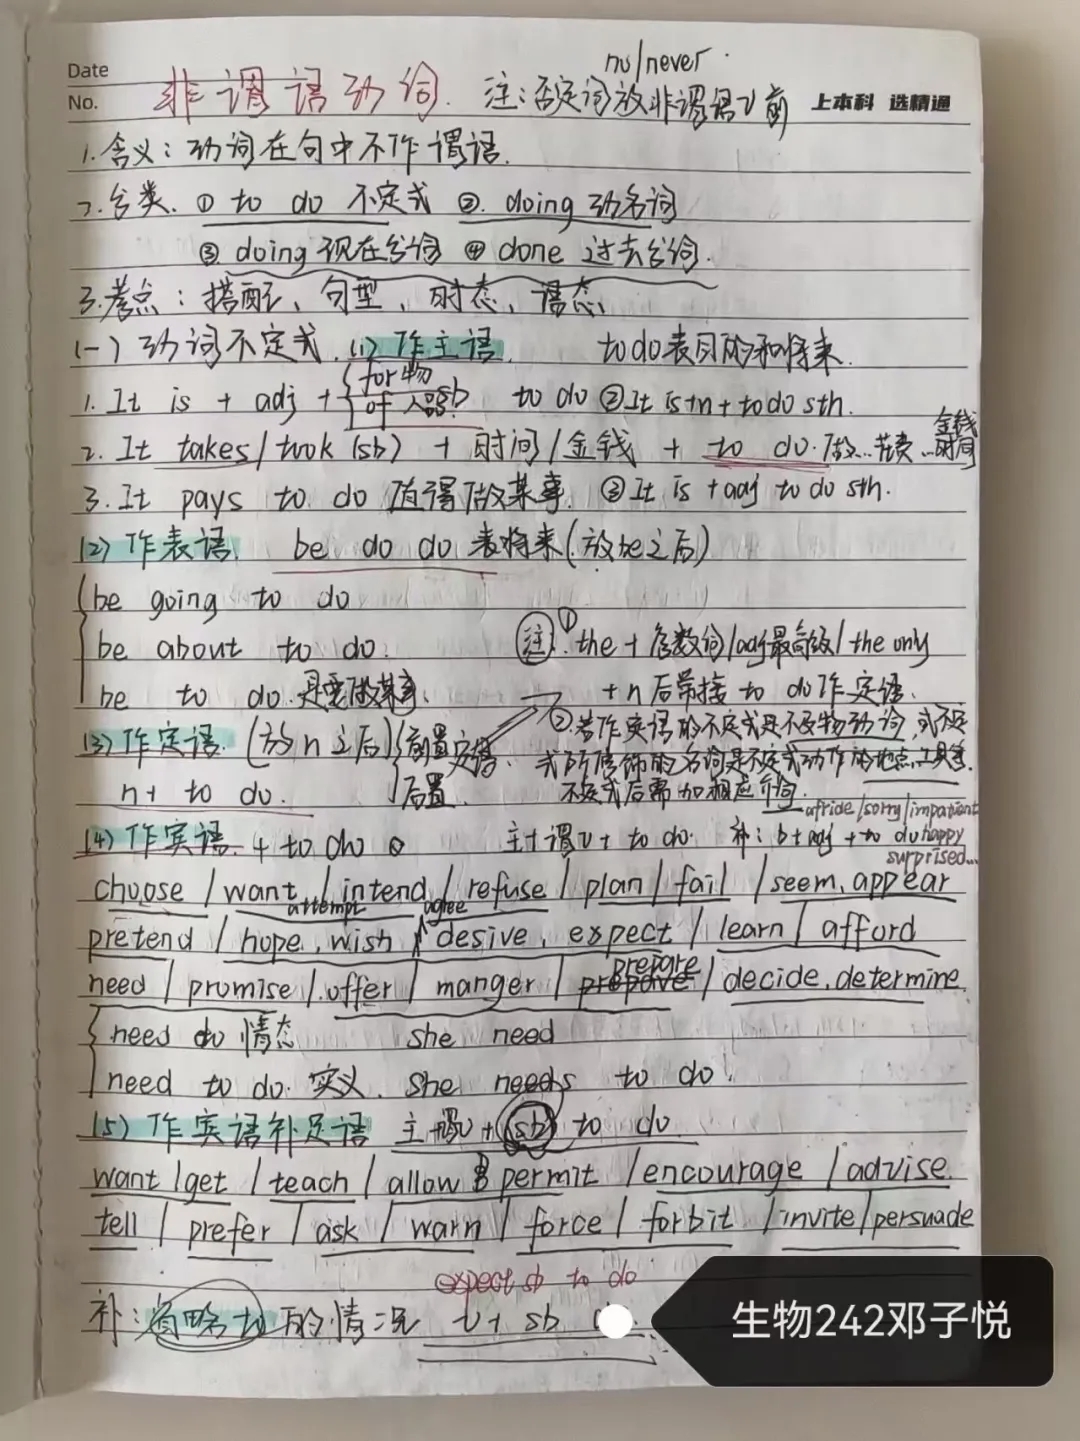 Date
no/never.
No. 非谓语动词. 注:否定词放非谓语v前 上本科 选精通
1.含义:动词在句中不作谓语.
2.分类. ① to do 不定式 ②. doing 动名词
③ doing 现在分词 ④ done 过去分词.
3.考点:搭配、句型、时态、语态、
(一) 动词不定式. (1)作主语. to do表目的和将来.
1. It is + adj + {for物 of 人 sb. to do ②It is+n+to do sth.
2. It takes/took (sb) + 时间/金钱 + to do. 做…花费…金钱 时间
3. It pays to do 值得做某事. ③It is +adj to do sth.
(2) 作表语. be do do 表将来(放be之后)
be going to do
be about to do. 注:① the + 序数词/adj最高级/the only
be to do. 是要做某事. +n后常接 to do作定语.
(3) 作定语. (放n之后) {前置定语. ②若作宾语的不定式是不及物动词,或不定
后置. 式所修饰的名词是不定式动作的地点、工具等.
n+ to do. 不定式后需加相应介词.
afride/sorry/impatient
(4) 作宾语. + to do 主+谓v+ to do. 补: b+adj +to do happy
surprised...
choose / want / intend / refuse / plan / fail / seem, appear
attempt agree
pretend / hope, wish / desive, expect / learn / afford
prepare
need / promise / offer / manger / / decide, determine.
need do 情态 she need
need to do. 实义. she needs to do.
(5) 作宾语补足语 主+谓v+(sb) to do.
want / get / teach / allow permit / encourage / advise.
tell / prefer / ask / warn / force / forbit / invite / persuade
expect sb to do
补:省略to的情况 v+ sb
生物242邓子悦